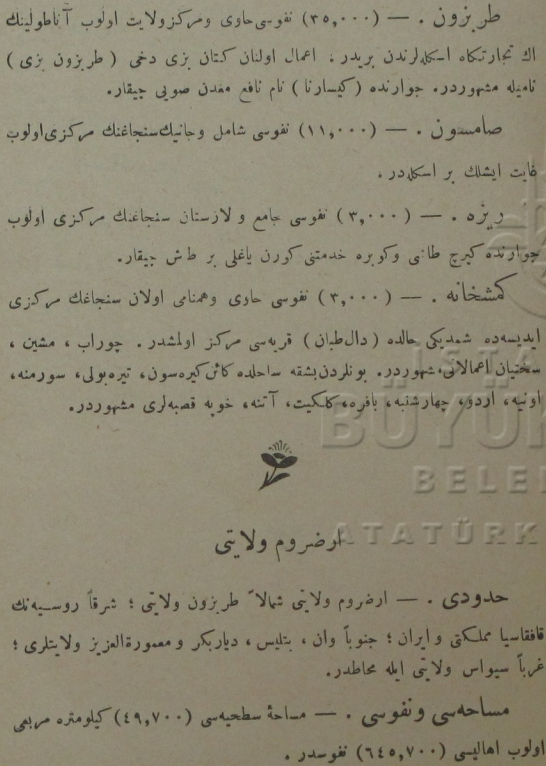 طربزون . — (٣٥,٠٠٠) نفوسی حاوی ومرکز ولایت اولوب آناطولینك
اك تجارتكاه اسكله‌لرندن بریدر . اعمال اولنان كتان بزی دخی (طربزون بزی)
نامیله مشهوردر. جوارنده (كیسارنا) نام نافع معدن صویی چیقار.
صامسون . — (١١,٠٠٠) نفوسی شامل وجانیك سنجاغنك مركزی اولوب
غایت ایشلك بر اسكله‌در .
ریزه . — (٣,٠٠٠) نفوسی جامع و لازستان سنجاغنك مركزی اولوب
جوارنده كیرج طاشی وكوبره خدمتنی كورن یاغلی بر طاش چیقار.
كمشخانه . — (٣,٠٠٠) نفوسی حاوی وهمنامی اولان سنجاغك مركزی
ایدیسه‌ده شمدیكی حالده (دال‌طبان) قریه‌سی مركز اولمشدر . چوراب ، مشین ،
سختیان اعمالاتی مشهوردر. بونلردن بشقه ساحلده كائن كیره‌سون، تیره‌بولی، سورمنه،
اونیه، اردو، چهارشنبه، بافره، كلكیت، آتنه، خوپه قصبه‌لری مشهوردر.
ارضروم ولایتی
حدودی . — ارضروم ولایتی شمالاً طربزون ولایتی ؛ شرقاً روسیه‌نك
قافقاسیا مملكتی و ایران ؛ جنوباً وان ، بتلیس ، دیاربكر و معمورة‌العزیز ولایتلری ؛
غرباً سیواس ولایتی ایله محاطدر.
مساحه‌سی ونفوسی . — مساحهٔ سطحیه‌سی (٤٩,٧٠٠) كیلومتره مربعی
اولوب اهالیسی (٦٤٥,٧٠٠) نفوسدر .
İSTA
BÜYÜK
BELE
ATATÜRK